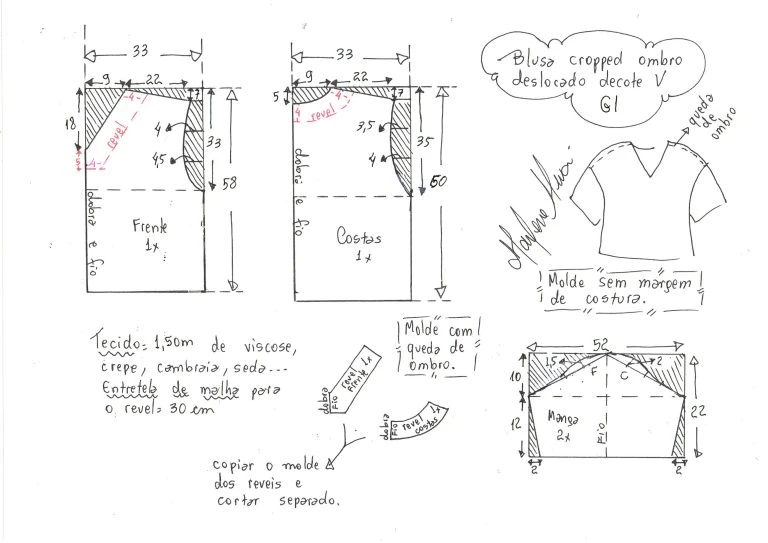 Blusa cropped ombro
deslocado decote V
G1
33
9
22
7
4
18
revel
4
4,5
33
58
5
4
dobra e fio
Frente
1x
33
9
22
7
5
4
4
revel
3,5
4
35
60
dobra e fio
Costas
1x
queda
de
ombro
Molde sem margem
de costura.
Tecido: 1,50m de viscose,
crepe, cambraia, seda...
Entretela de malha para
o revel: 30 cm
Molde com
queda de
ombro.
dobra
fio
revel
frente
1x
dobra
fio
revel
costas
1x
copiar o molde
dos reveis e
cortar separado.
52
1,5
F
C
2
10
12
22
Manga
2x
fio
2
2